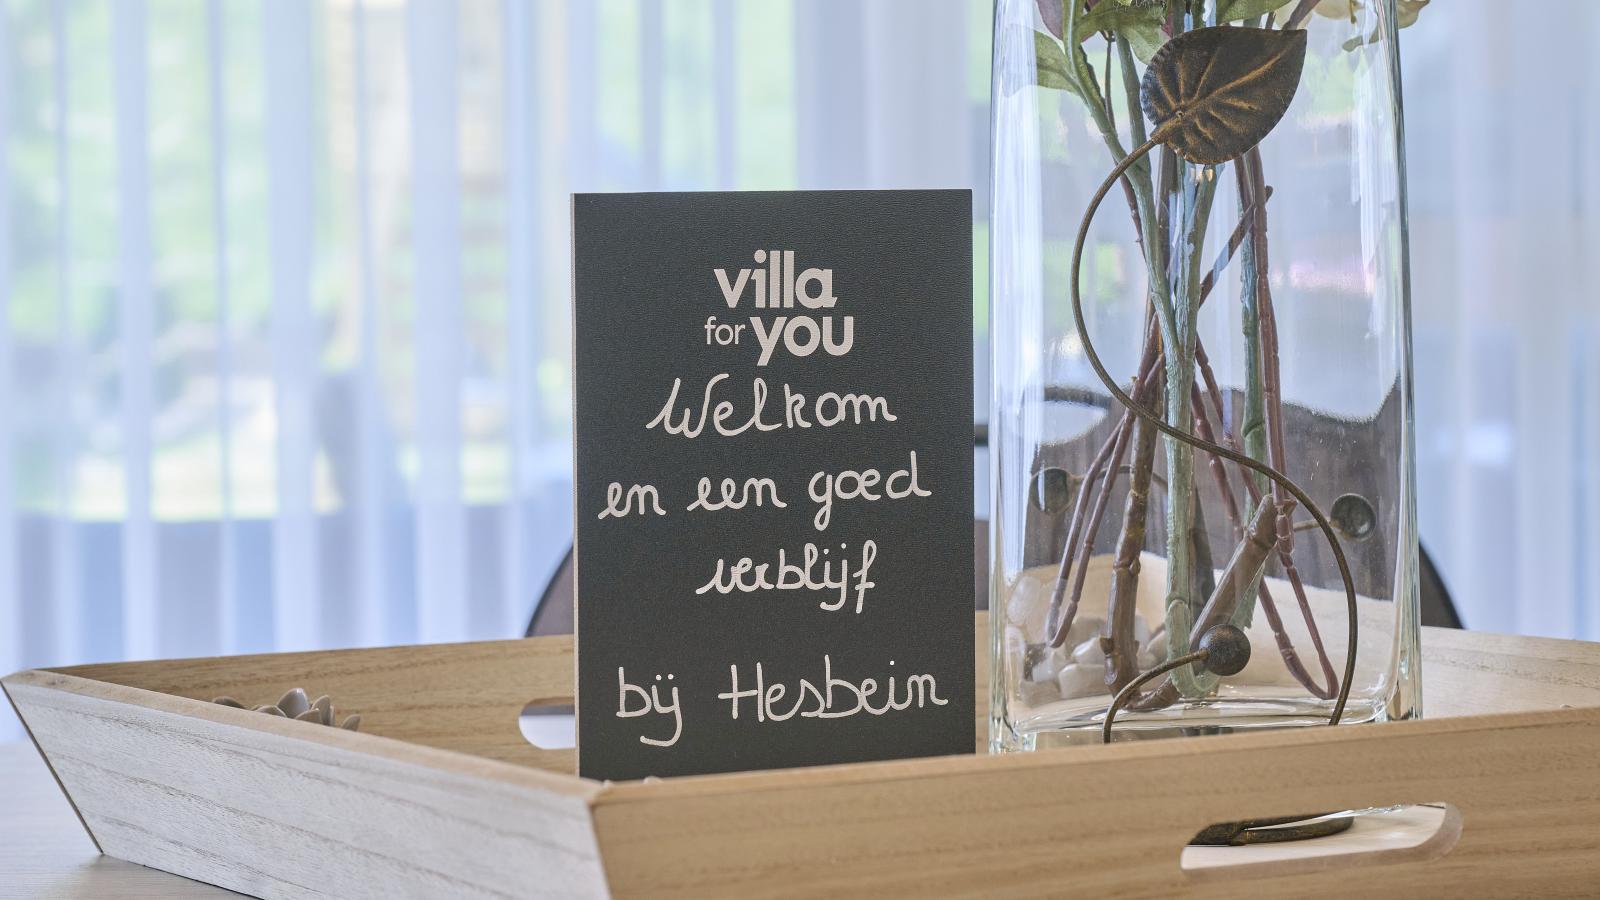 villa
for you
Welkom
en een goed
verblijf
bij Hesbein